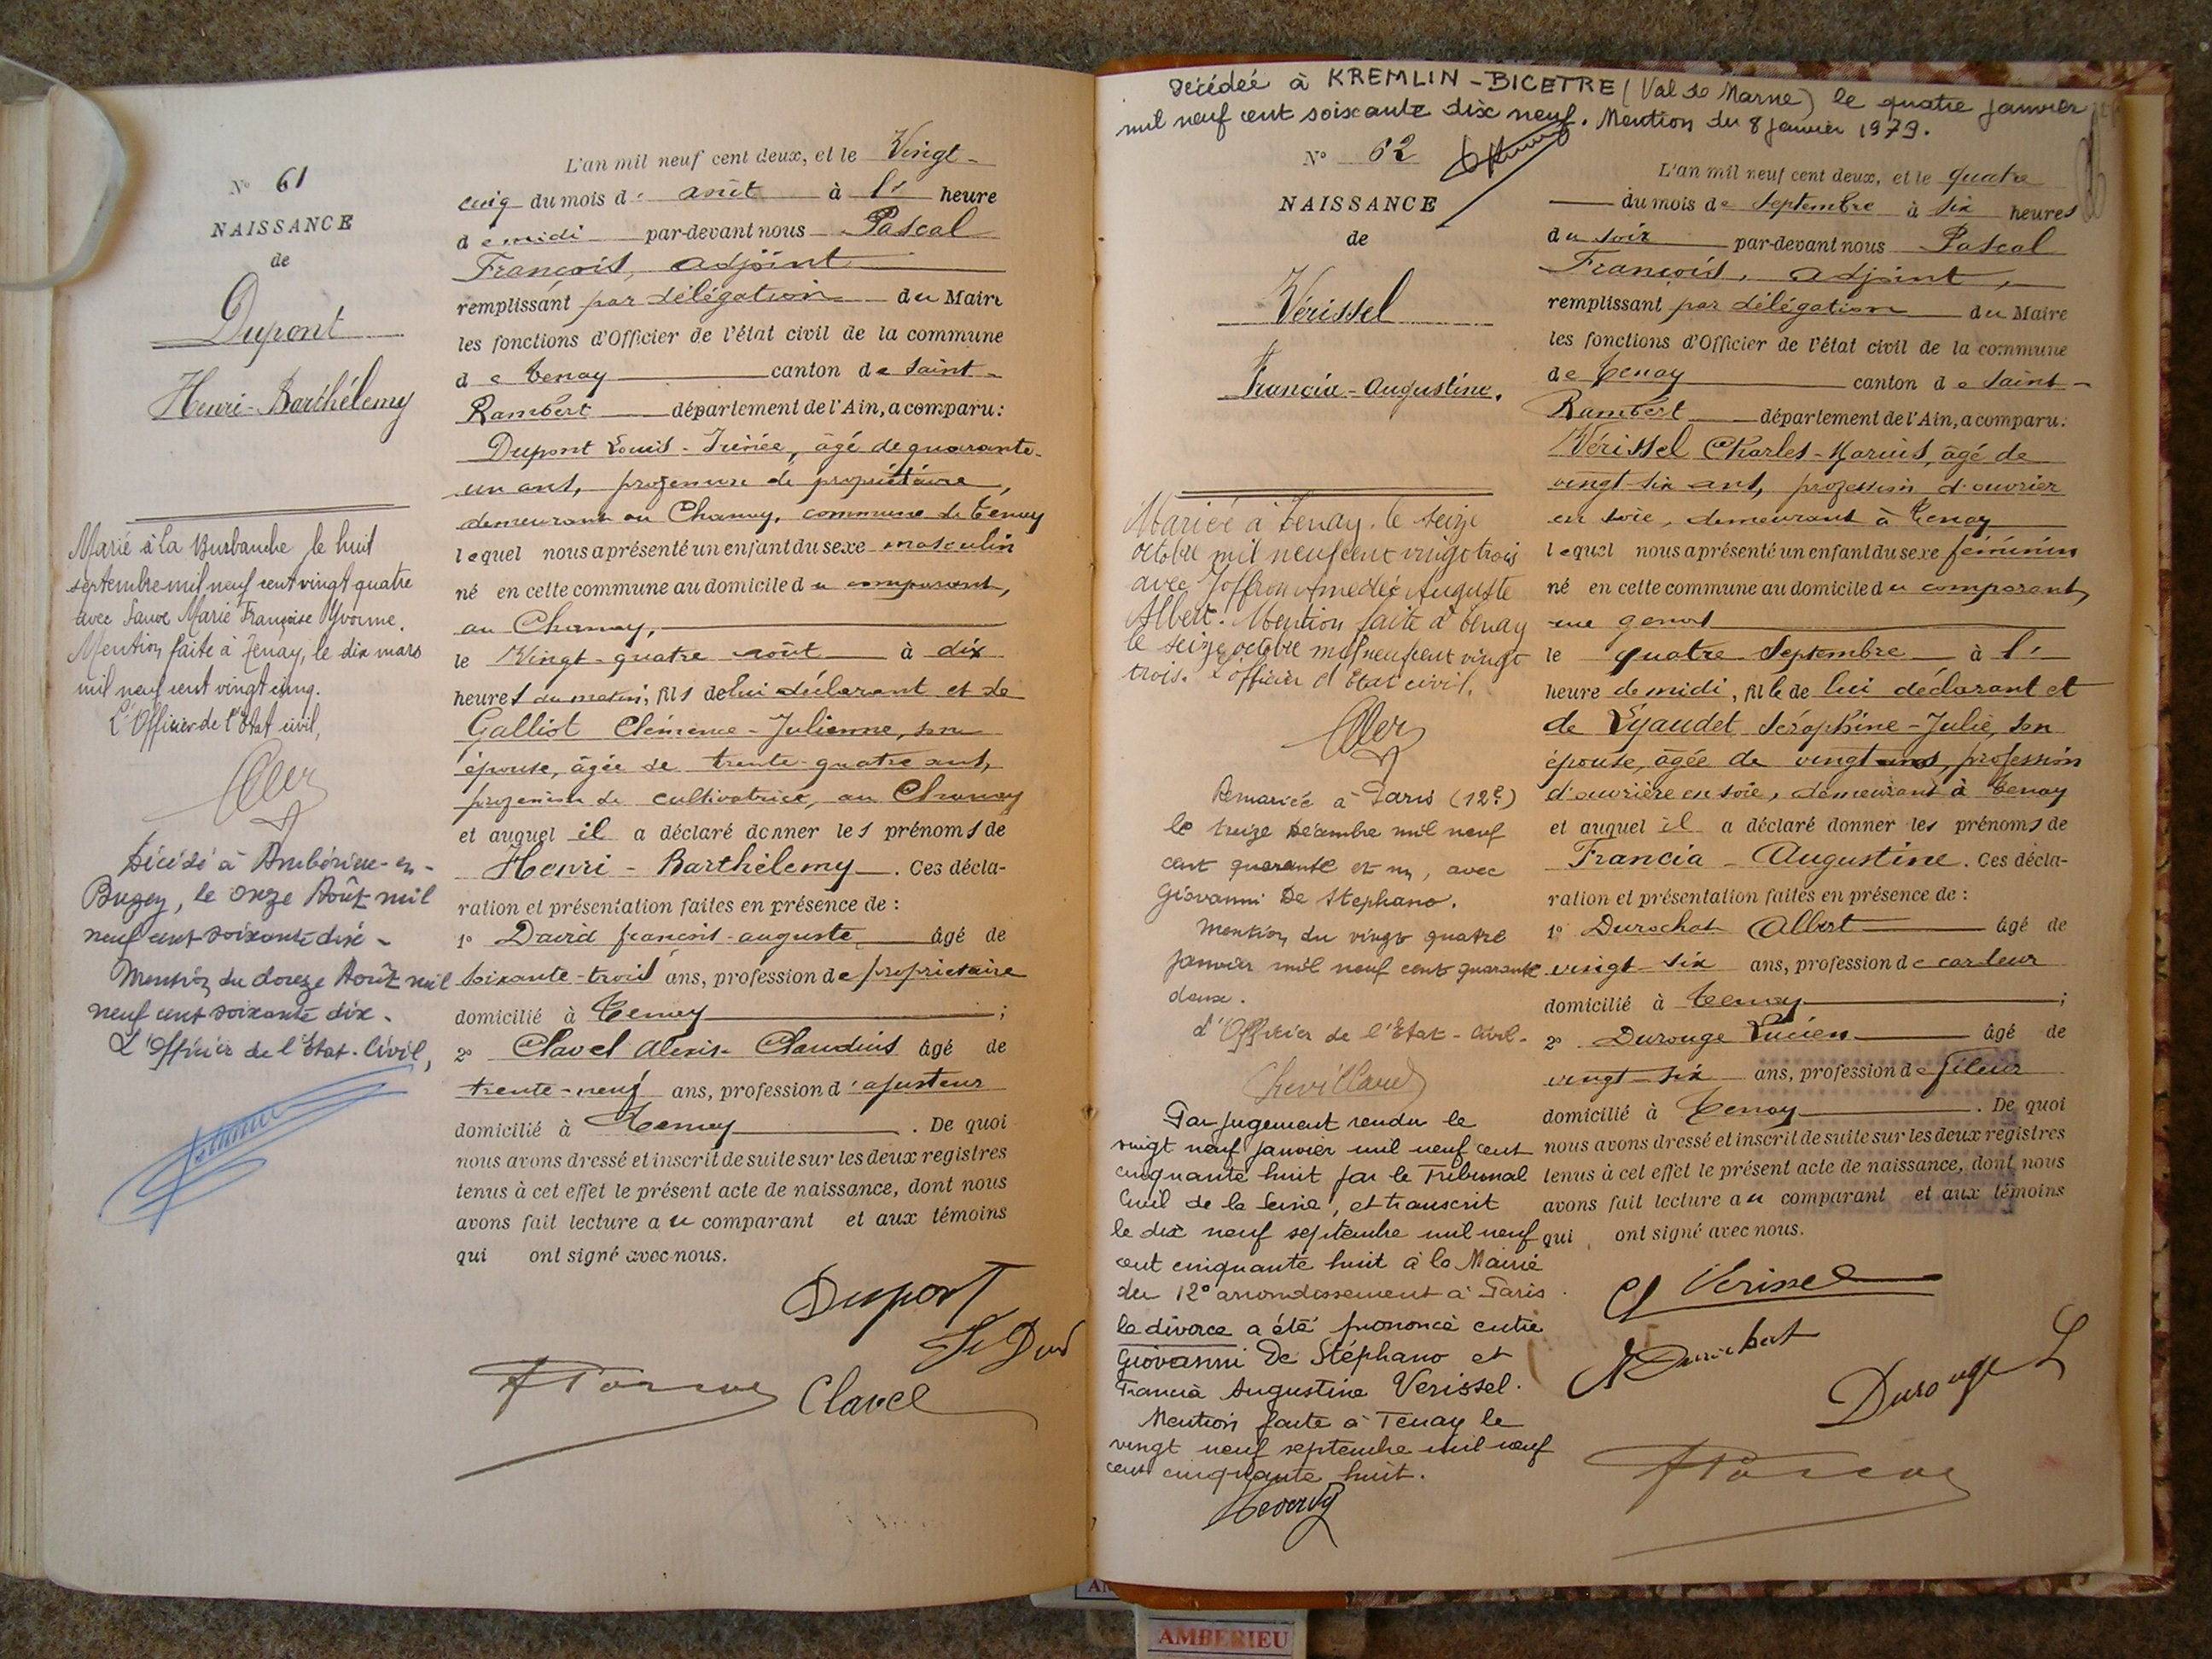 N° 61
NAISSANCE
de
Dupont
Henri-Barthélemy
Marié à La Burbanche le huit
septembre mil neuf cent vingt quatre
avec Sauve Marie Françoise Yvonne.
Mention faite à Tenay, le dix mars
mil neuf cent vingt cinq.
L'Officier de l'État civil,
Décédé à Ambérieu-en-
Bugey, le onze Août mil
neuf cent soixante dix -
Mention du douze Août mil
neuf cent soixante dix.
L'Officier de l'Etat-Civil,
L'an mil neuf cent deux, et le Vingt-
cinq du mois d' août à l' heure
de midi par-devant nous Pascal
François, adjoint
remplissant par délégation du Maire
les fonctions d'Officier de l'état civil de la commune
de Tenay canton de Saint-
Rambert département de l'Ain, a comparu:
Dupont Louis-Irénée, âgé de quarante-
un ans, profession de propriétaire,
demeurant au Chanay, commune de Tenay
lequel nous a présenté un enfant du sexe masculin
né en cette commune au domicile du comparant,
au Chanay,
le Vingt-quatre août à dix
heures du matin, fils de lui déclarant et de
Galliot Clémence-Julienne, son
épouse, âgée de trente-quatre ans,
profession de cultivatrice, au Chanay
et auquel il a déclaré donner les prénoms de
Henri-Barthélemy. Ces décla-
ration et présentation faites en présence de :
1° David françois-auguste âgé de
soixante-trois ans, profession de propriétaire
domicilié à Tenay ;
2° Clavel Alexis-Claudius âgé de
trente-neuf ans, profession d'ajusteur
domicilié à Tenay . De quoi
nous avons dressé et inscrit de suite sur les deux registres
tenus à cet effet le présent acte de naissance, dont nous
avons fait lecture au comparant et aux témoins
qui ont signé avec nous.
Dupont
Clavel
Décédée à KREMLIN-BICETRE (Val de Marne) le quatre janvier
mil neuf cent soixante dix neuf. Mention du 8 janvier 1979.
N° 62
NAISSANCE
de
Vérissel
Francia-Augustine.
Mariée à Tenay, le seize
octobre mil neuf cent vingt trois
avec Joffron Amédée Auguste
Albert. Mention faite à Tenay
le seize octobre mil neuf cent vingt
trois. L'officier d'Etat civil,
Remariée à Paris (12e)
le treize Décembre mil neuf
cent quarante et un, avec
Giovanni De Stephano.
Mention du vingt quatre
janvier mil neuf cent quarante
deux.
L'Officier de l'Etat-Civil.
Chevillard
Par jugement rendu le
vingt neuf janvier mil neuf cent
cinquante huit par le Tribunal
Civil de la Seine, et transcrit
le dix neuf septembre mil neuf
cent cinquante huit à la Mairie
du 12e arrondissement à Paris
le divorce a été prononcé entre
Giovanni De Stéphano et
Francia Augustine Verissel.
Mention faite à Tenay le
vingt neuf septembre mil neuf
cent cinquante huit.
L'an mil neuf cent deux, et le quatre
du mois de Septembre à six heures
du soir par-devant nous Pascal
François, adjoint,
remplissant par délégation du Maire
les fonctions d'Officier de l'état civil de la commune
de Tenay canton de Saint-
Rambert département de l'Ain, a comparu:
Vérissel Charles-Marius, âgé de
vingt-six ans, profession d'ouvrier
en soie, demeurant à Tenay
lequel nous a présenté un enfant du sexe féminin
né en cette commune au domicile du comparant,
rue genod
le quatre Septembre à l'
heure de midi, fille de lui déclarant et
de Lyaudet Séraphine-Julie, son
épouse, âgée de vingt ans, profession
d'ouvrière en soie, demeurant à Tenay
et auquel il a déclaré donner les prénoms de
Francia-Augustine. Ces décla-
ration et présentation faites en présence de :
1° Durochat Albert âgé de
vingt-six ans, profession de cardeur
domicilié à Tenay ;
2° Durouge Lucien âgé de
vingt-six ans, profession de fileur
domicilié à Tenay . De quoi
nous avons dressé et inscrit de suite sur les deux registres
tenus à cet effet le présent acte de naissance, dont nous
avons fait lecture au comparant et aux témoins
qui ont signé avec nous.
Ch Verissel
A Durochat
Durouge L
AMBERIEU